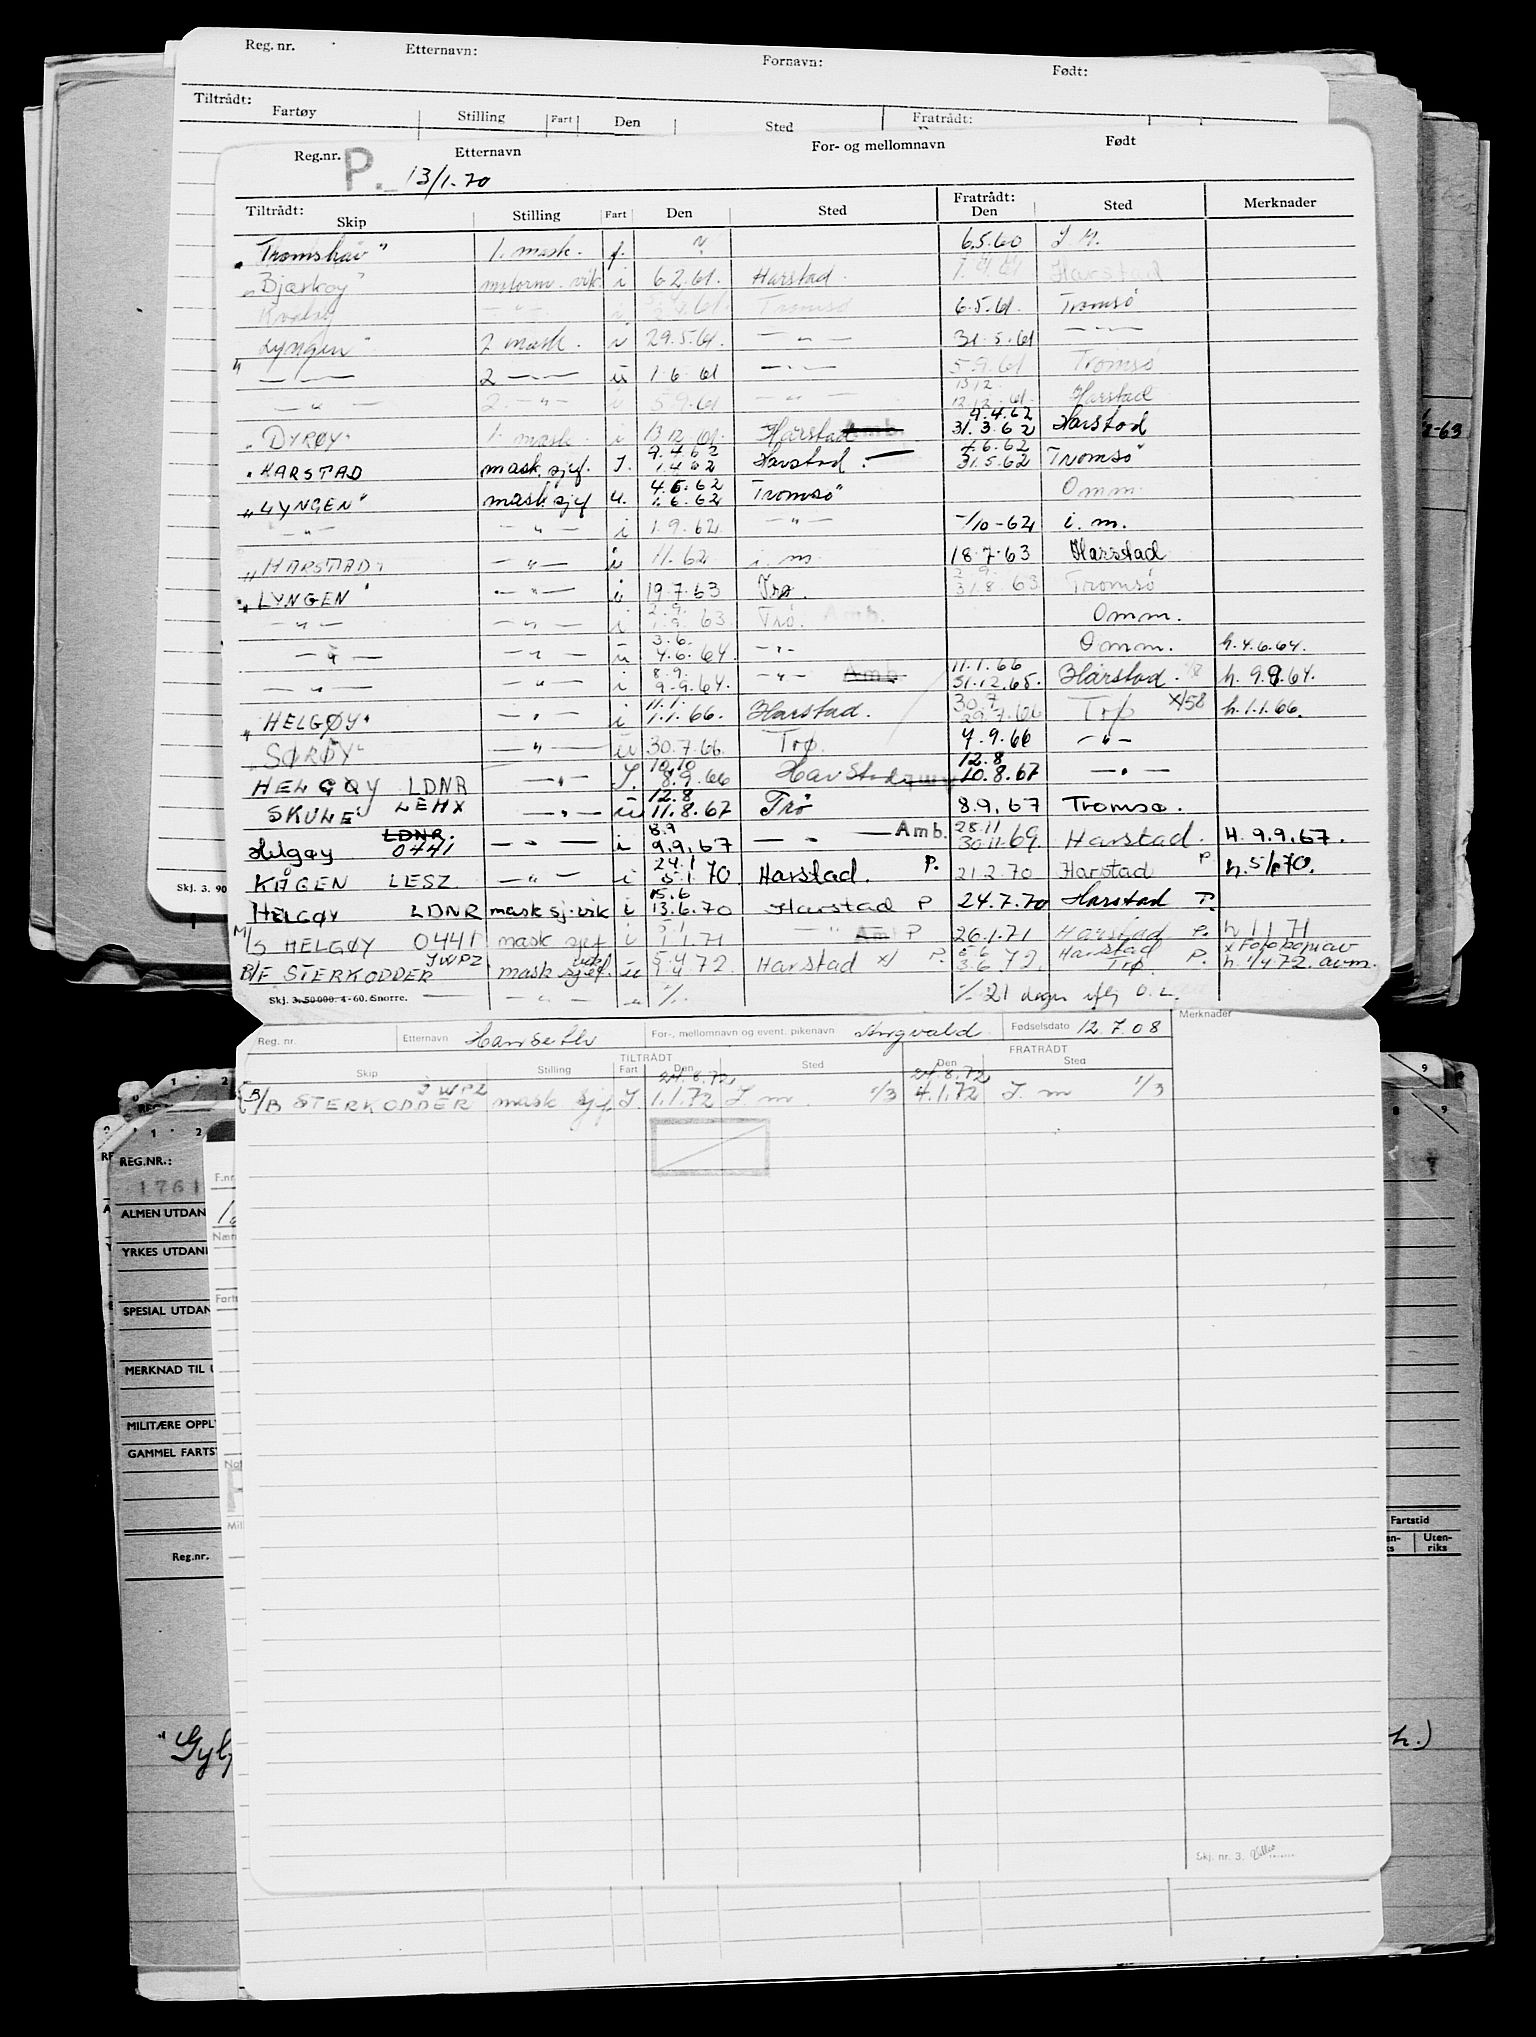 Reg. nr. Etternavn: Fornavn: Født:
Tiltrådt: Fartøy Stilling Fart Den Sted Fratrådt:
Reg.nr. Etternavn For- og mellomnavn Født
P. 13/1-70
Tiltrådt: Skip Stilling Fart Den Sted Fratrådt: Den Sted Merknader
"Tromshav" 1. mask. f. 6.5.60
"Bjarkøy" vik. i 6.2.61. Harstad. Harstad
Tromsø 6.5.61. Tromsø
Lyngen" 2 mask. i 29.5.61. — " — 31.5.61 — " —
" — " — 2 — " — u 1.6.61 — " — 5.9.61 Tromsø
— " — 2. — " — i 5.9.61 — " — 13.12 12.12.61. Harstad
"DYRØY" 1. mask. i 13.12.61. Harstad Amb. 9.4.62 31.3.62 Harstad
"HARSTAD mask.sjef. I. 9.4.62 1.4.62 Harstad. — 4.6.62 31.5.62 Tromsø
"LYNGEN" mask.sjef u. 4.6.62 1.6.62 Tromsø Omm.
— " — — " — i 1.9.62. — " — -/10-62 i. m.
"HARSTAD" — " — u 11.62 i. m 18.7.63 Harstad
"LYNGEN" — " — u 19.7.63 Trø. 2.9. 31.8.63 Tromsø
— " — — " — i 2.9. 1.9.63. Trø. Amb. Omm.
— " — — " — u 3.6. 4.6.64. — " — Omm. h. 4.6.64.
— " — — " — i 8.9. 9.9.64. — " — Amb. 11.1.66 31.12.65. Harstad. h. 9.9.64.
"HELGØY" — " — i 11.1. 1.1.66. Harstad. 30.7 29.7.66 Trø x/58 h.1.1.66.
"SØRØY" — " — u 30.7.66. Trø. 7.9.66 — " —
HELGØY LDNR — " — I. 10.10 8.9.66 Harstad 12.8 10.8.67 — " —
SKULE" LEHX — " — u 12.8 11.8.67 Trø 8.9.67 Tromsø.
Helgøy LDNR. 0441 — " — i 8.9 9.9.67 — " — Amb. 28.11 30.11.69. Harstad. H. 9.9.67.
KÅGEN LESZ. — " — i 24.1 5.1.70 Harstad. P. 21.2.70 Harstad P h. 5/1.70.
HELGØY LDNR mask sj.vik i 15.6 13.6.70 Harstad P 24.7.70 Harstad P.
M/S HELGØY 0441 mask sjef i 5.1 1.1.71 — " — Amb P 26.1.71 Harstad P. h 1 1 71
B/F STERKODDER JWPZ mask sjef. vik u 5.4 1.4.72. Harstad x/ P. 5.6 3.6.72. Harstad Trø. P. x Fotokopiav h. 1/4 72. avm.
Skj. 3. 50 000. 4-60. Snorre. — — " — " ·/. ·/. 21 dager iflg O.L.
Skj. 3. 90
2-63
Reg. nr. Etternavn Hanseth For-, mellomnavn og event. pikenavn Angvald Fødselsdato 12.7.08 Merknader
TILTRÅDT FRATRÅDT
Skip Stilling Fart Den Sted Den Sted
B/B STERKODDER JWPZ mask sjef. I. 24.8.72 1.1.72 I. m. 1/3 24.8.72 4.1.72 I. m 1/3
REG.NR.:
1761
ALMEN UTDAN
YRKES UTDAN
SPESIAL UTDAN
MERKNAD TIL
MILITÆRE OPPL
GAMMEL FARTS
Reg.nr.
F.nr
Fartstid
Uten-riks
"Gyl
h.)
Skj. nr. 3.